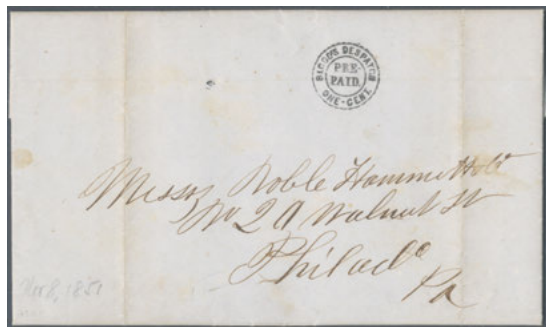 BLOOD'S DESPATCH
PRE-
PAID.
ONE-CENT.
Messrs Noble Hammett &
No 29 Walnut St
Philada
Pa
1851